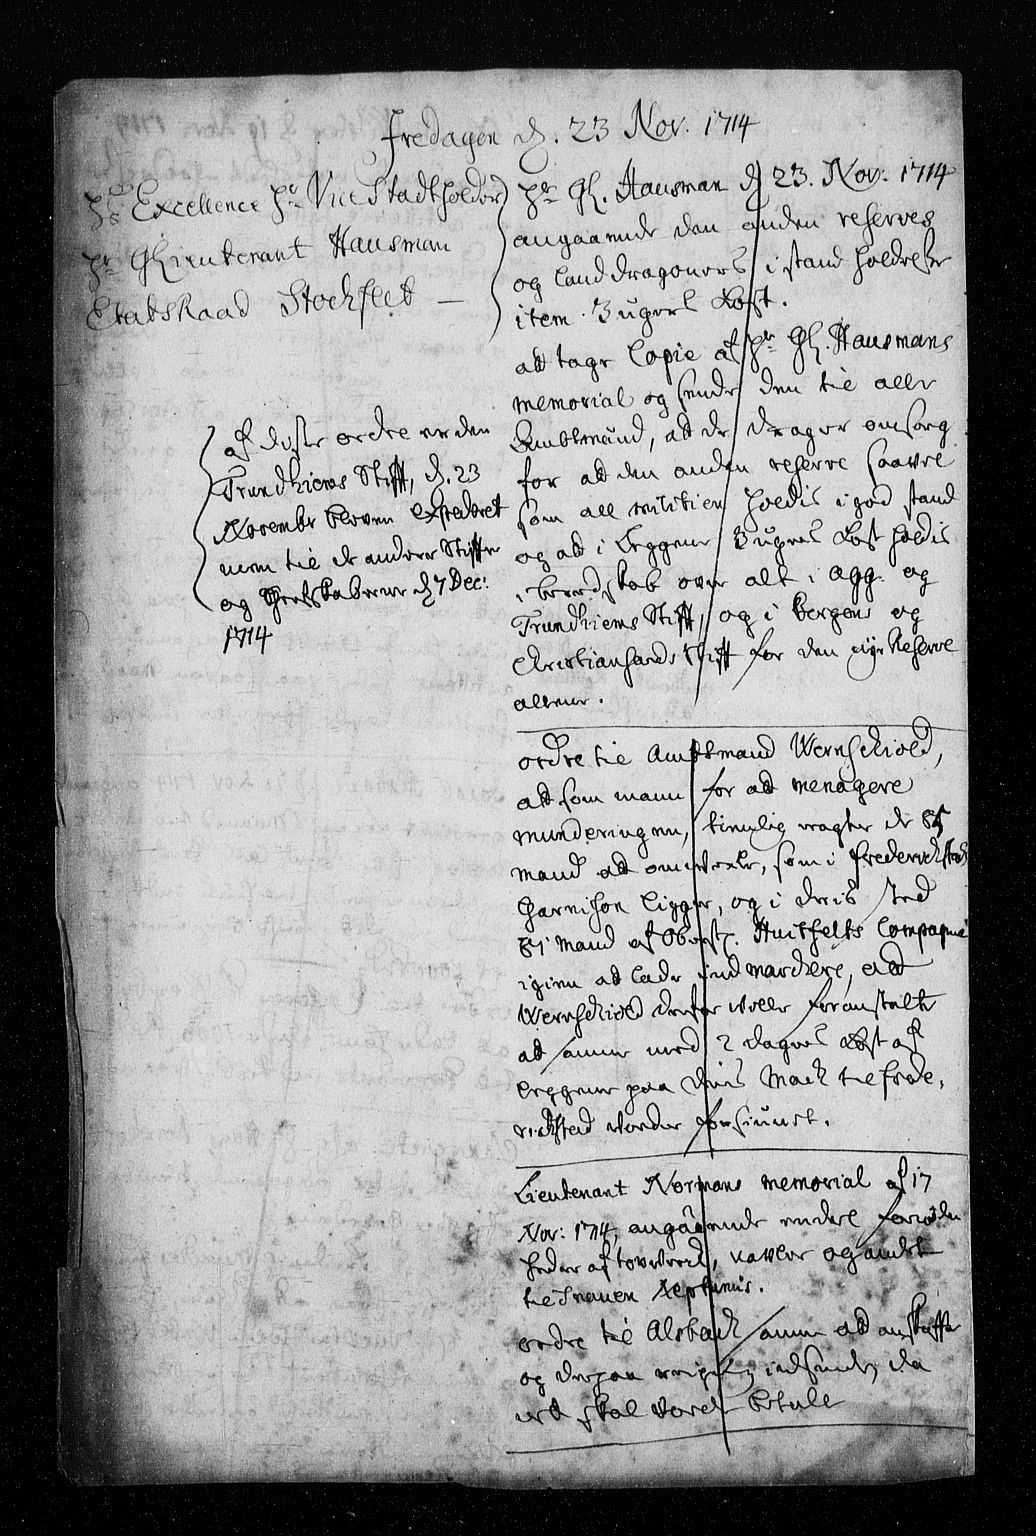 Fredagen d. 23 Nov. 1714
Hs Excellence Hr Vice Stadtholder
Hr Glieutenant Hausman
Etatsraad Stockflet —
Hr Gl. Hausman d 23. Nov. 1714
angaaende den anden reserves
og land dragoners i stand holdelse
item 3 ugers Kost.
att tage Copie af Hr Gl. Hausmans
memorial og sende den til alle
Ambtmænd, at de drager omsorg
for at den anden reserve saavel
som all militien holdis i god stand
og at i Leggene 3 ugers Kost holdis
i beredskab over alt i Agg. og
Trundhiems Stifft, og i Bergens og
Christiansands Stifft for den nye Reserve
allene.
af diste ordre er den
Trundhiems Stifft, d. 23
November bleven expederet
men til de andere Stiffter
og Grefskaberne d 7 Dec:
1714
ordre til Ambtmand Wernschiold,
at som mann for at menagere
munderingen, de 85
mand at omvexle, som i Frederichstads
Garnison ligger, og i deris sted
85 Mand af Oberst. Huitfelts Compagnie
igien at lade indmarchere, at
Wernschiold derfor wille foranstalte
at samme med 2 dages Kost af
leggene paa deris March til Frede,
richstad vorder forsiunet.
Lieutenant Normans memorial af 17
Nov: 1714, angaaende endeel fornøden
heder af touverck, navler og andet
til Snauen Neptunus.
ordre til Alsback samme at anskaffe
og derpaa indsende, da
det skal vorde betalt